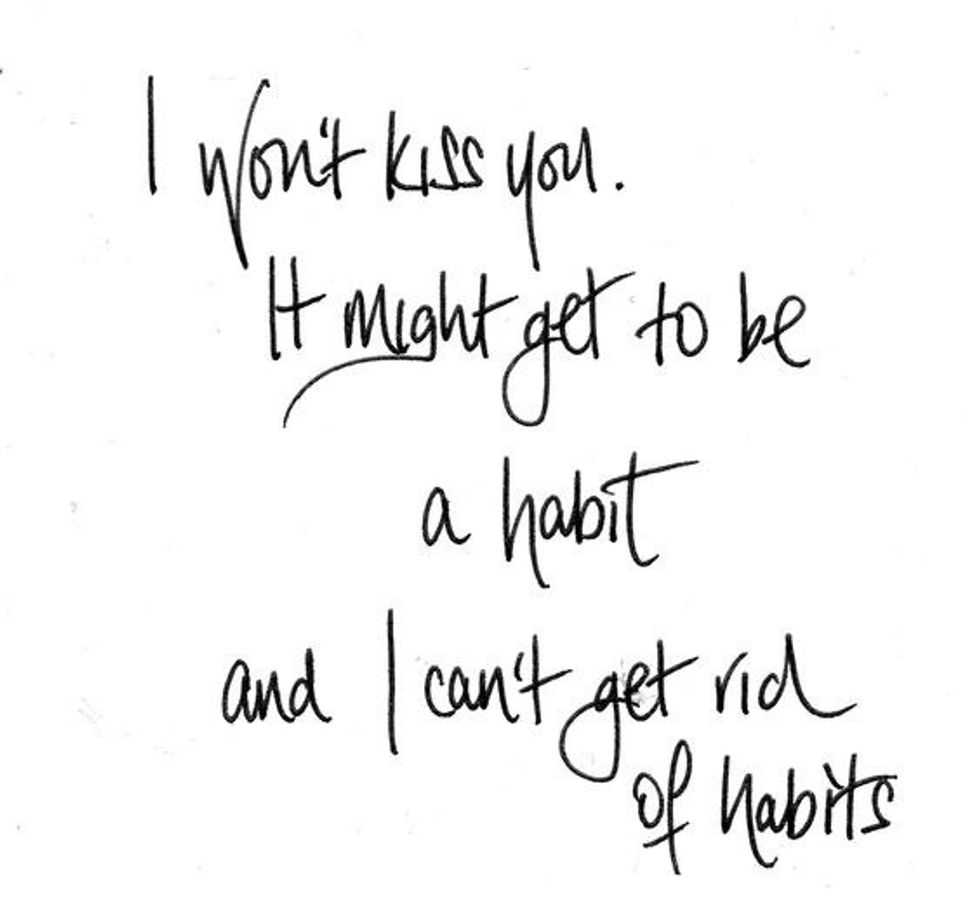 I won't kiss you.
It might get to be
a habit
and I can't get rid
of habits